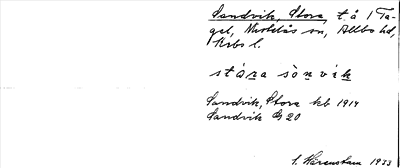 Sandvik, Stora, t. å 1 Ta-
gel, Mistelås sn, Allbo hd,
Krbs l.
stára sònvik
Sandvik, Stora kb 1914
Sandvik G 20
S. Härenstam 1933